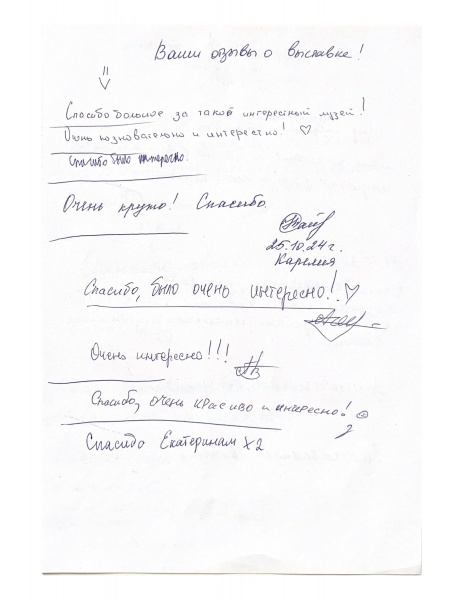 Ваши отзывы о выставке!
Спасибо большое за такой интересный музей!
Очень познавательно и интересно! ♡
Спасибо было интересно.
Очень круто! Спасибо
25.10.24г.
Карелия
Спасибо, было очень интересно! ♡
Очень интересно!!!
Спасибо, очень красиво и интересно! ☺
Спасибо Екатеринам х2